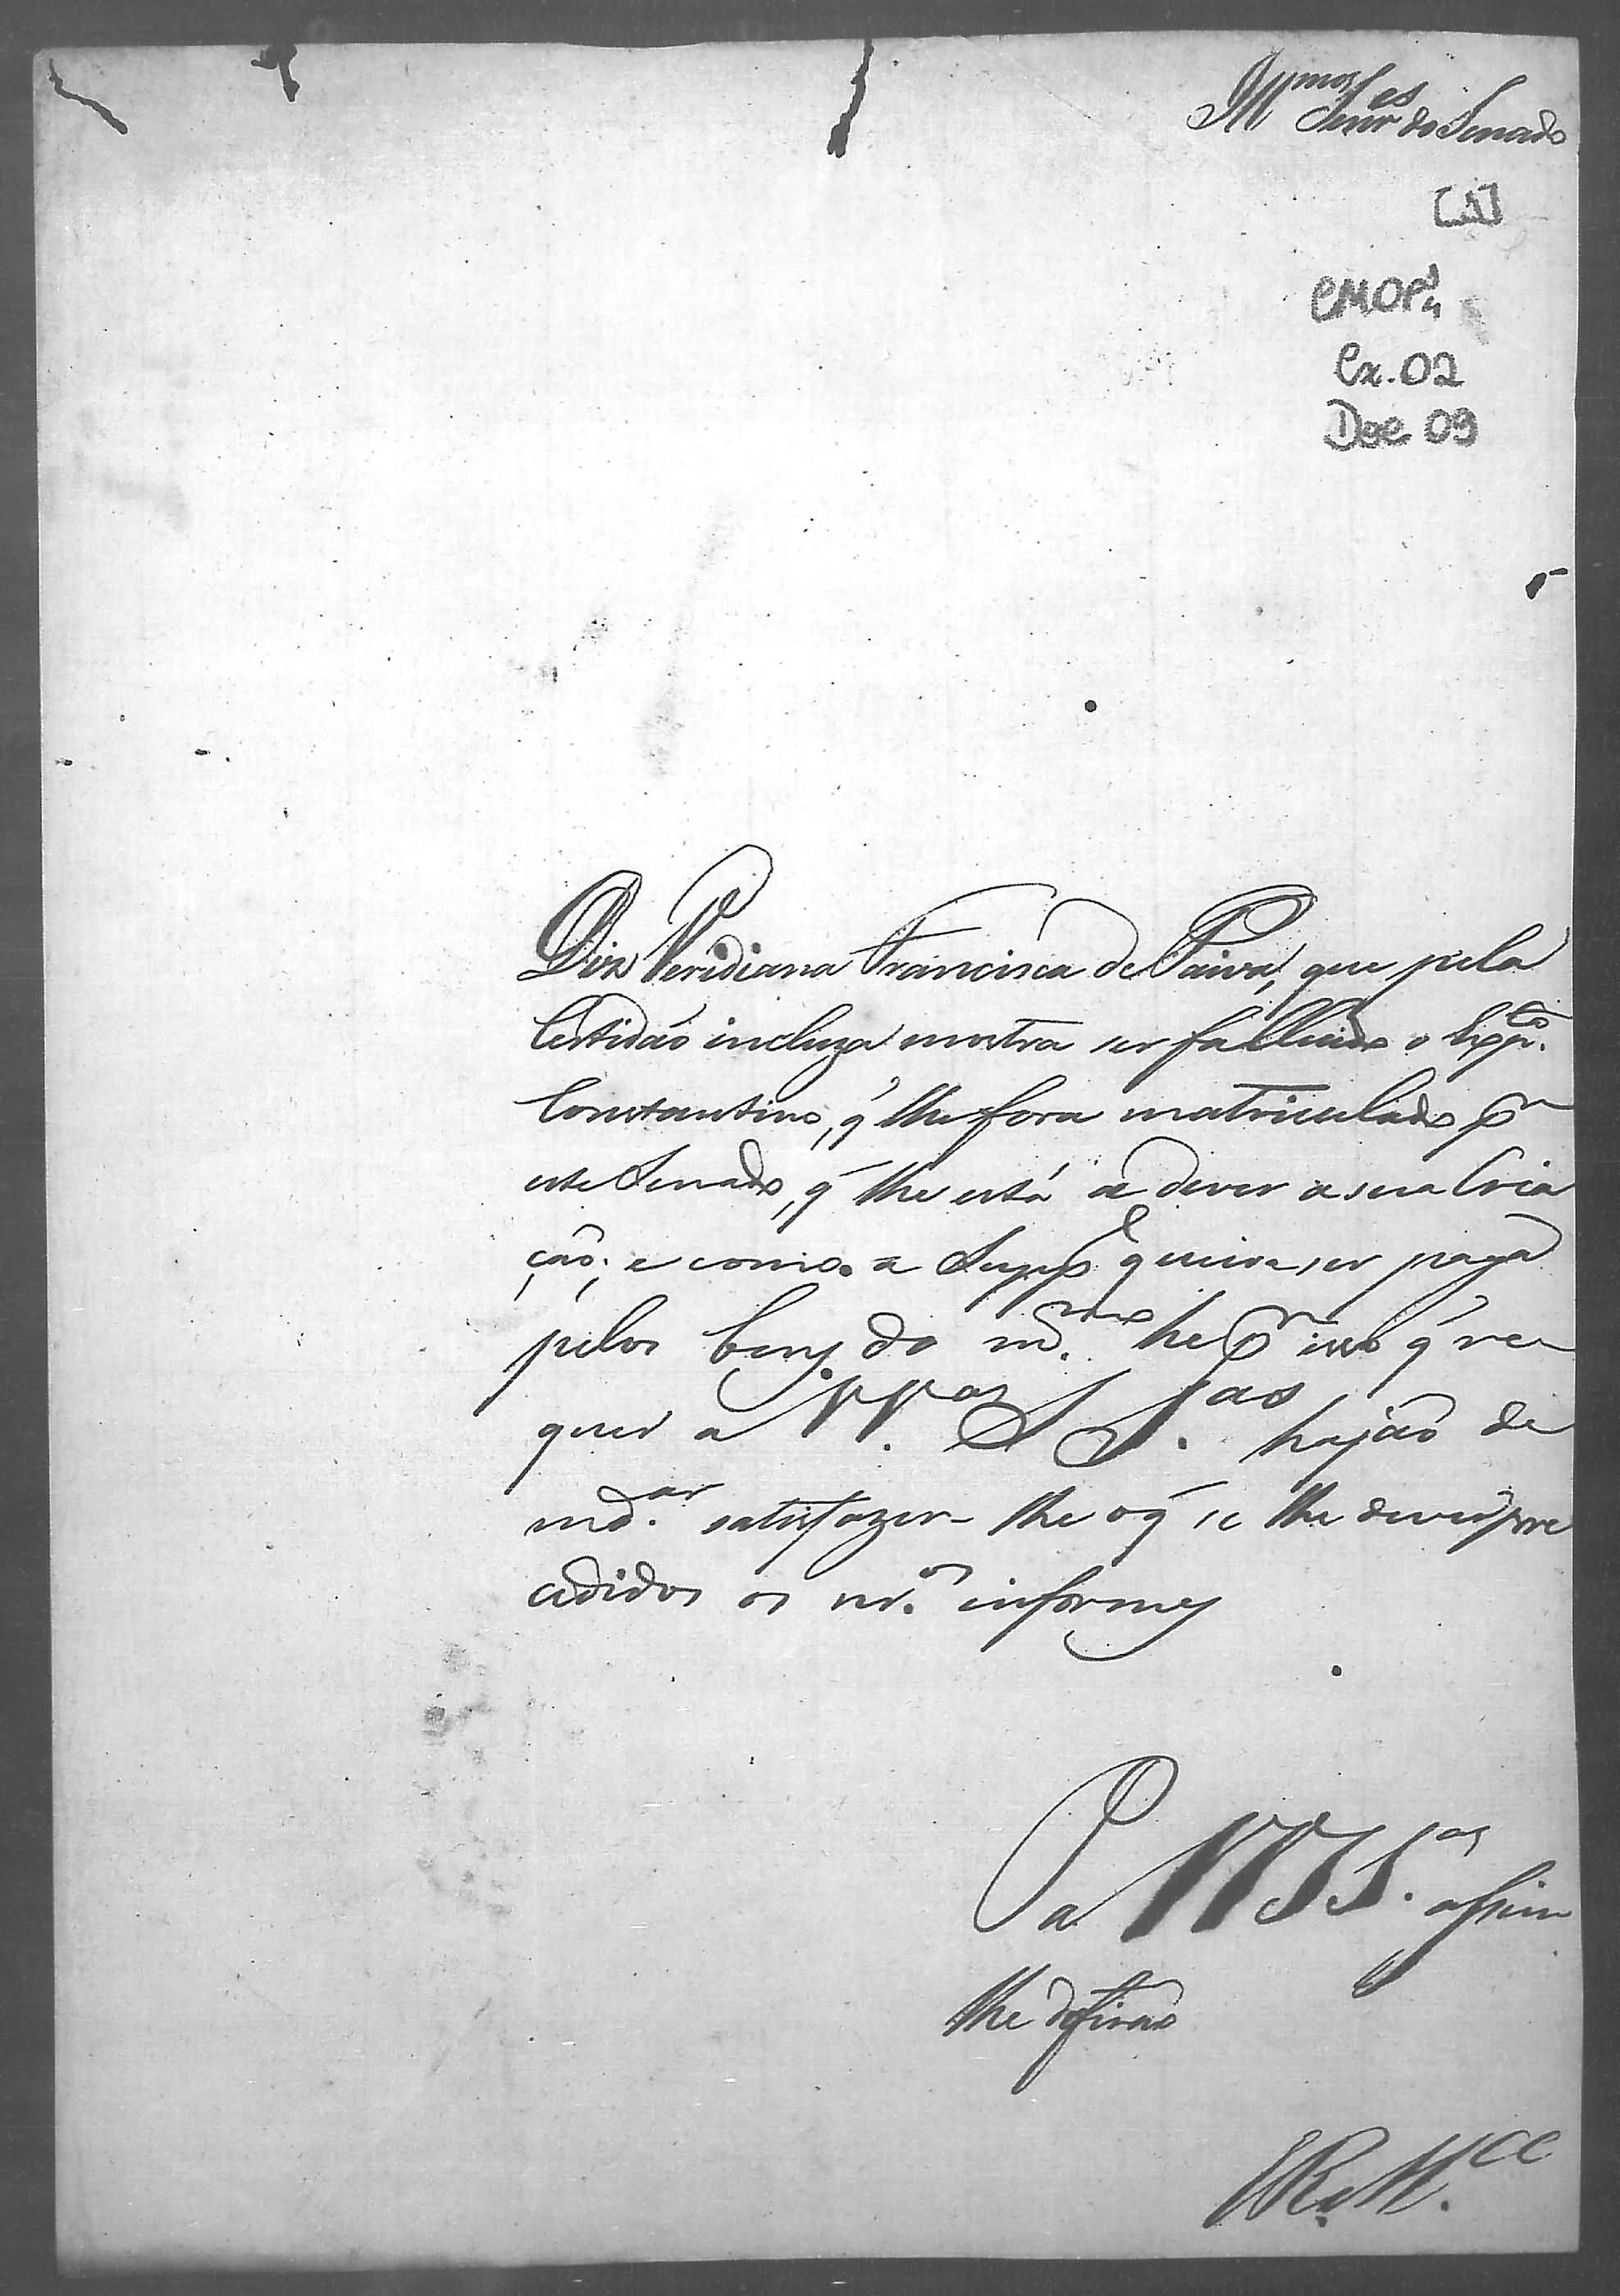 Illmos Senres do Senado
[1]
CMOP
Cx. 02
Doc 09
Diz Veridiana Francisca de Paiva, que pela
Certidaõ incluza mostra ser fallecido o Expto.
Constantino, q̃ lhe fora matriculado pr
este Senado, q̃ lhe está a dever a sua Cria
çaõ; e como a Suppe. queira ser paga
pelos bens do mmo. he pr isso q̃ re
quer a VV. SSas. hajaõ de
mdar. satisfazer-lhe o q̃ se lhe dever pre
cedidos os informes
P a VVSSas. assim
lhe defiraõ
ERMce.